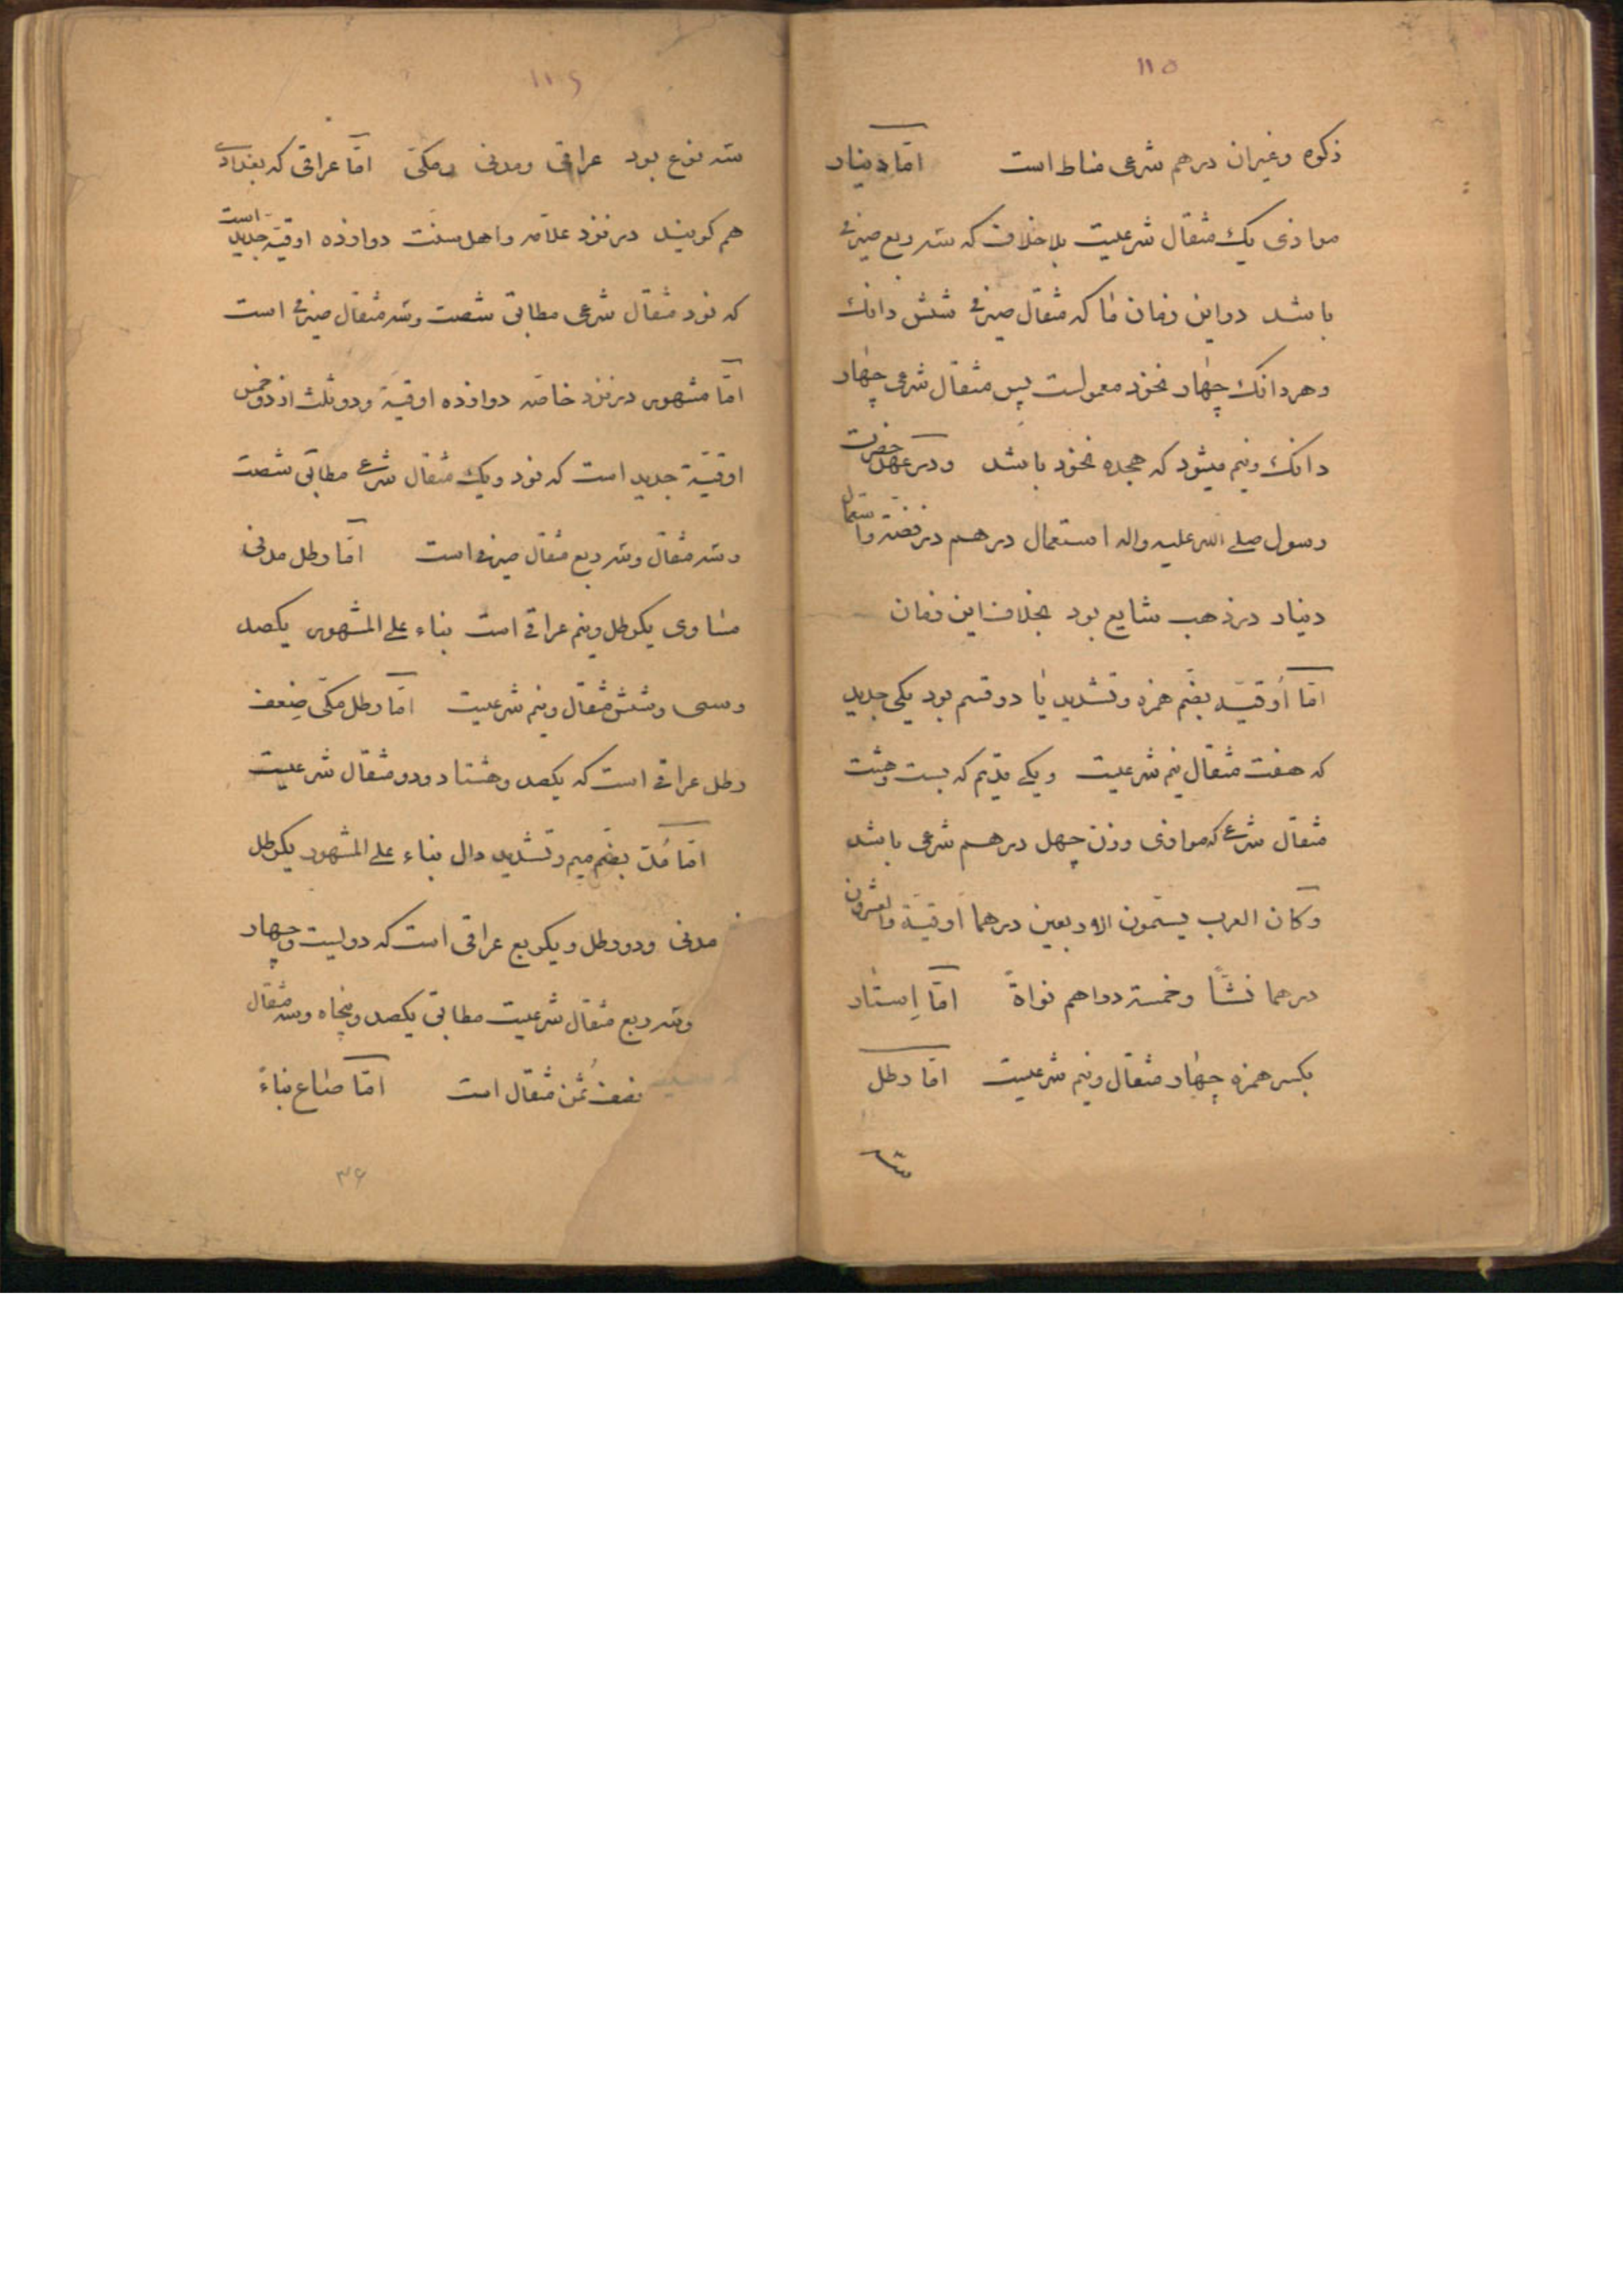 ١١٥
زكوة وغیر ان درهم شرعی مناط است امّا دینار
موازی یک مثقال شرعیست بلا خلاف که سه ربع صیرفی
باشد در این زمان ما که مثقال صیرفی شش دانک
و هر دانک چهار نخود معمولست پس مثقال شرعی چهار
دانک ونیم میشود که هجده نخود باشد ودر عهد حضرت
رسول صلی الله علیه واله استعمال درهم در فضّه واستعمال
دینار در ذهب شایع بود بخلاف این زمان
امّا اُوقیّه بضّم همزه وتشدید یا دو قسم بود یکی جدید
که هفت مثقال نیم شرعیست ویکی قدیم که بیست وهشت
مثقال شرعی که موازی وزن چهل درهم شرعی باشد
وکان العرب یسمّون الاربعین درهما اوقیّة والعشرون
درهما نشّاً وخمسة دراهم نواةً امّا اِستار
بکسر همزه چهار مثقال ونیم شرعیست امّا رطل
سه
١١٦
سه نوع بود عراقی ومدنی ومکّی امّا عراقی که بغدادی
هم کویند در نزد علّامه واهل سنّت دوازده اوقیّه جدید است
که نود مثقال شرعی مطابق شصت وسه مثقال صیرفی است
امّا مشهور در نزد خاصّه دوازده اوقیّة ودو ثلث از دو خمس
اوقیّة جدید است که نود ویک مثقال شرعی مطابق شصت
وسه مثقال وسه ربع مثقال صیرفی است امّا رطل مدنی
مساوی یکرطل ونیم عراقی است بناء علی المشهور یکصد
وسی وشش مثقال ونیم شرعیست امّا رطل مکّی ضِعف
رطل عراقی است که یکصد وهشتاد ودو مثقال شرعیست
امّا مُدّ بضّم میم وتشدید دال بناء علی المشهور یکرطل
مدنی ودو رطل ویکربع عراقی است که دویست وچهار
وسه ربع مثقال شرعیست مطابق یکصد وپنجاه وسه مثقال
نصف ثُمن مثقال است امّا صاع بناءً
٣۶